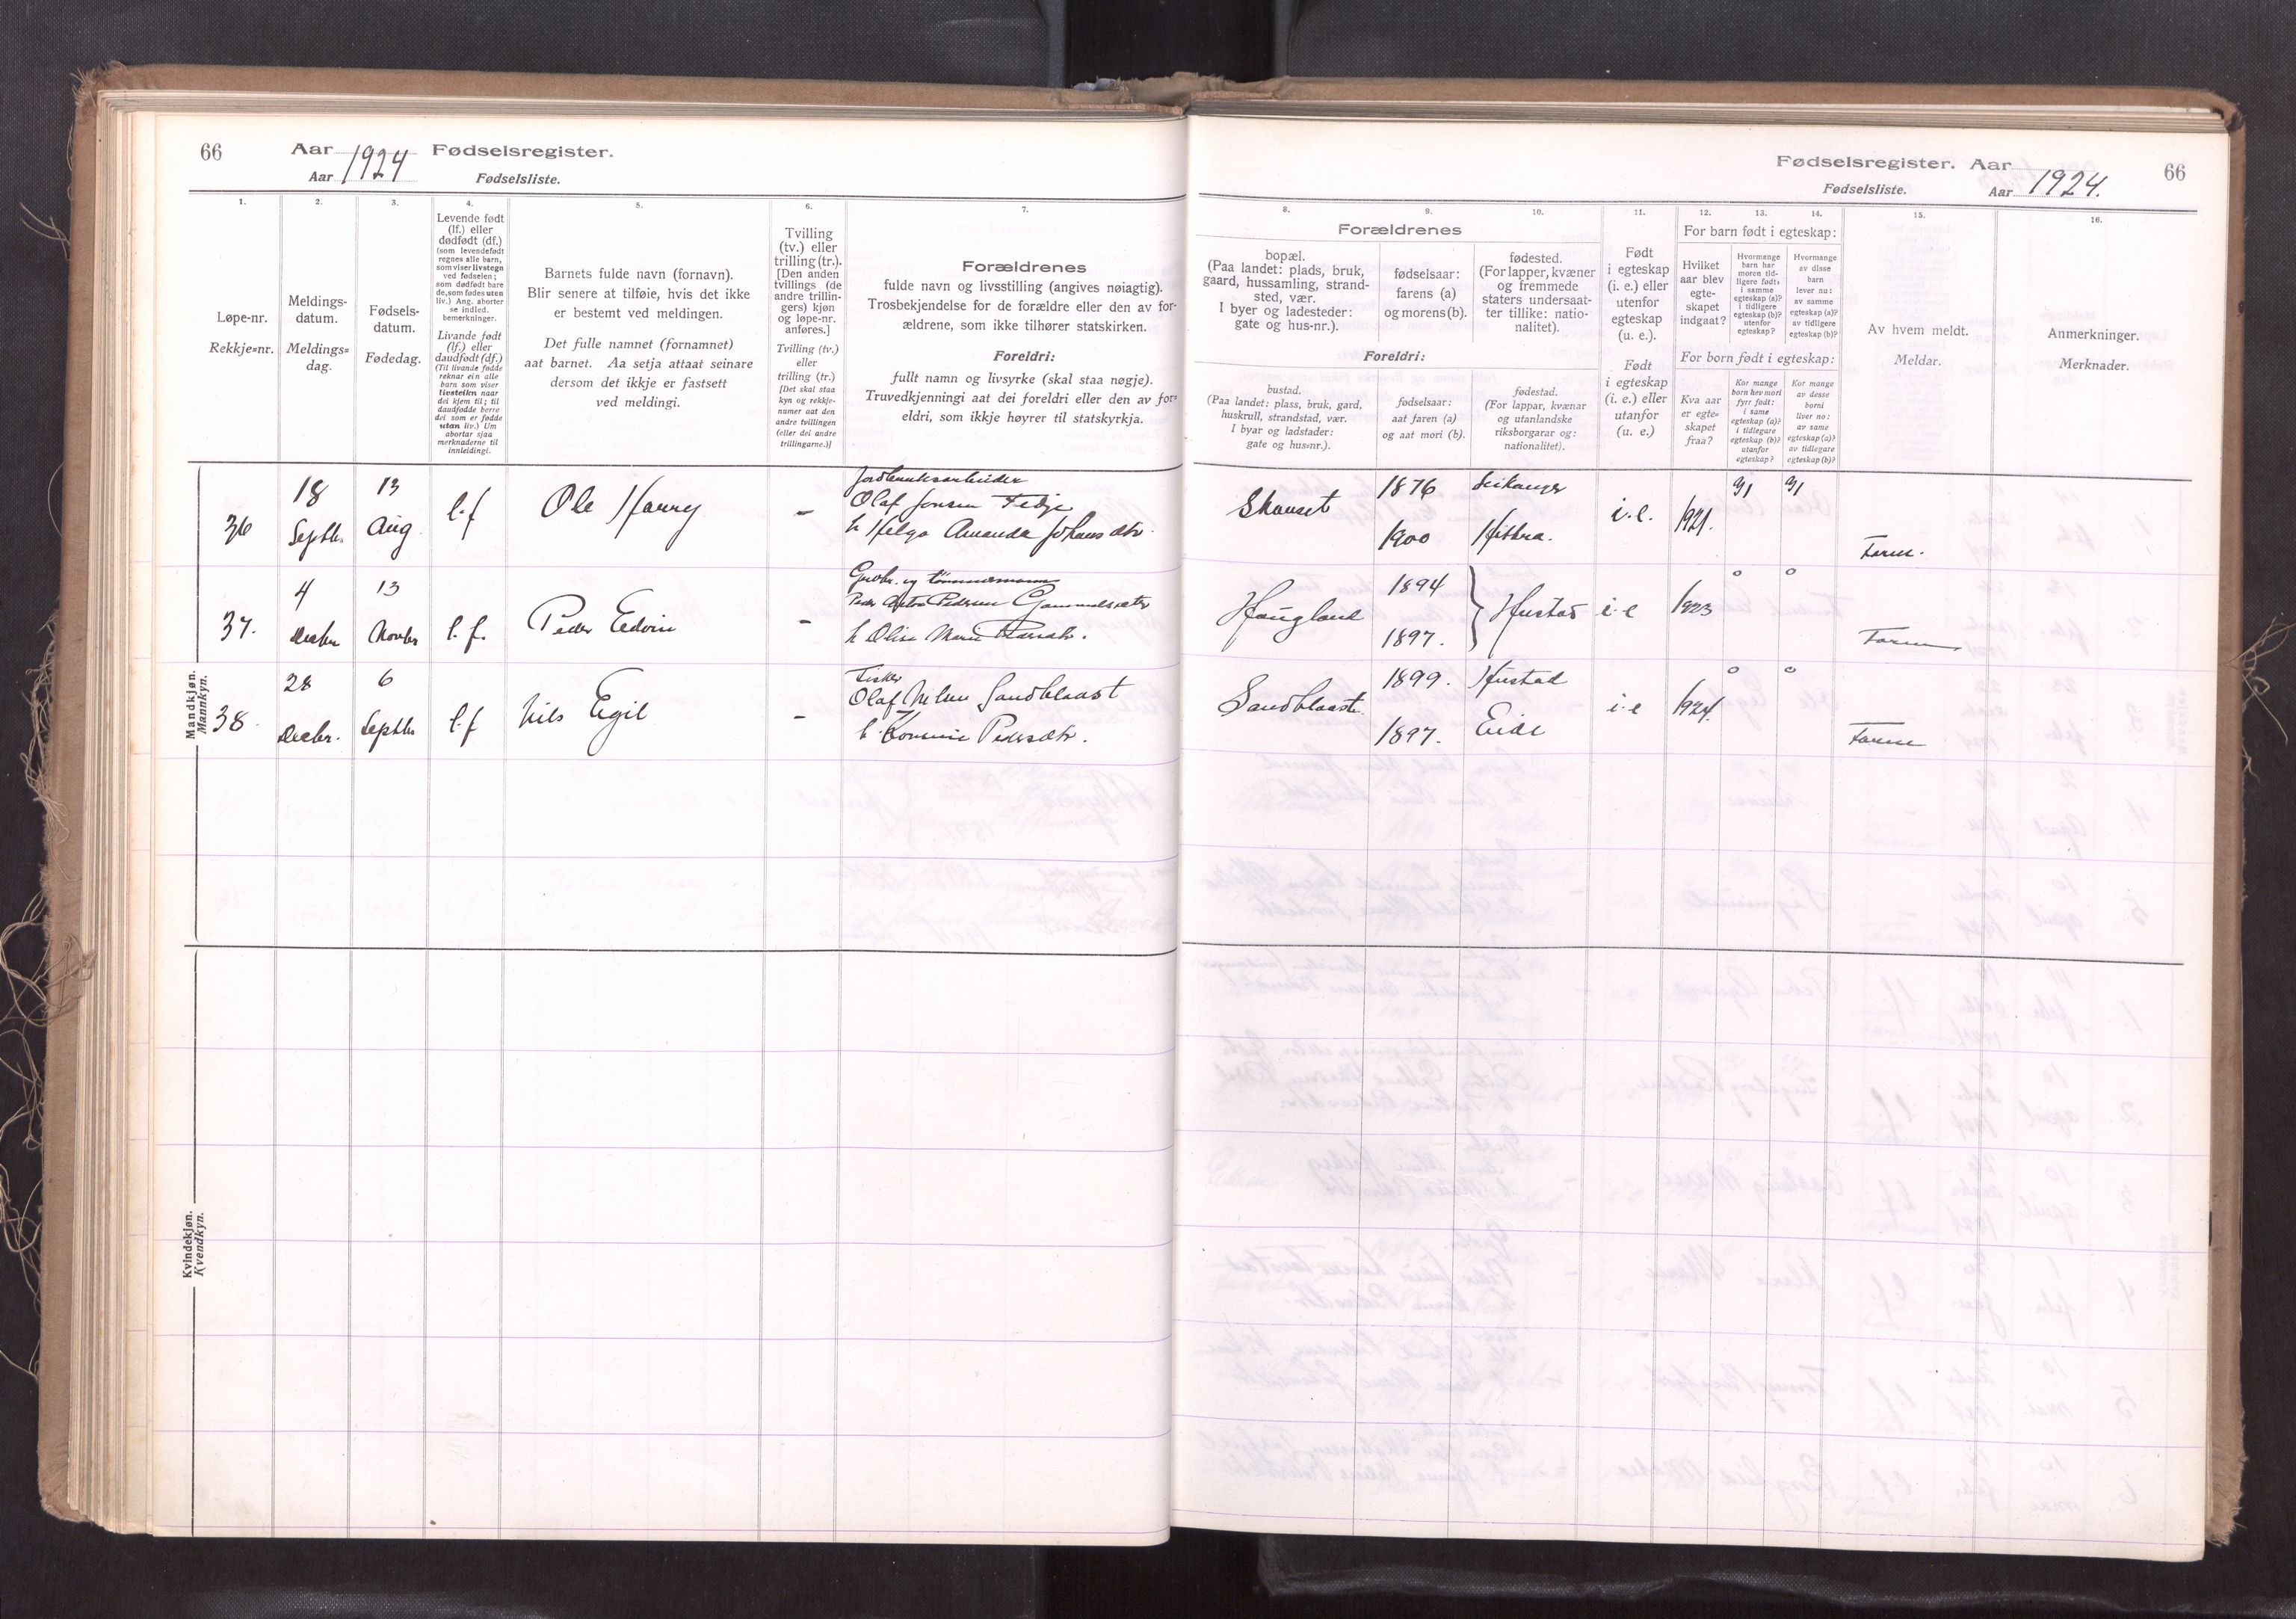 66
Aar 1924 Fødselsregister.
Aar Fødselsliste.
1.
2.
3.
4.
5.
6.
7.
Løpe-nr.
Rekkje=nr.
Meldings-
datum.
Meldings=
dag.
Fødsels-
datum.
Fødedag.
Levende født
(lf.) eller
dødfødt (df.)
(som levendefødt
regnes alle barn,
som viser livstegn
ved fødselen;
som dødfødt bare
de, som fødes uten
liv.) Ang. aborter
se indled.
bemerkninger.
Livande født
(lf.) eller
daudfødt (df.)
(Til livande fødde
reknar ein alle
barn som viser
livsteikn naar
dei kjem til; til
daudfødde berre
dei som er fødde
utan liv.) Um
abortar sjaa
merknaderne til
innleidingi.
Barnets fulde navn (fornavn).
Blir senere at tilføie, hvis det ikke
er bestemt ved meldingen.
Det fulle namnet (fornamnet)
aat barnet. Aa setja attaat seinare
dersom det ikkje er fastsett
ved meldingi.
Tvilling
(tv.) eller
trilling (tr.).
[Den anden
tvillings (de
andre trillin-
gers) kjøn
og løpe-nr.
anføres.]
Tvilling (tv.)
eller
trilling (tr.)
[Det skal staa
kyn og rekkje-
numer aat den
andre tvillingen
(eller dei andre
trillingarne.)]
Forældrenes
fulde navn og livsstilling (angives nøiagtig).
Trosbekjendelse for de forældre eller den av for-
ældrene, som ikke tilhører statskirken.
Foreldri:
fullt namn og livsyrke (skal staa nøgje).
Truvedkjenningi aat dei foreldri eller den av for=
eldri, som ikkje høyrer til statskyrkja.
Mandkjøn.
Mannkyn.
36
18
Septbr.
13
Aug
l.f
Ole Harry
-
Jordbruksarbeider
Olaf Jonsen Fedje
h Helga Amanda Johansdtr.
37.
4
Decbr
13
Novbr
l.f.
Peder Edvin
-
Gaardbr. og tømmermann
Peder Anton Pedersen Gammelsæter
h Oline Marie
38.
28
Decbr.
6
Septbr
l.f
Nils Egil
-
Fisker
Olaf Nilsen Sandblaast
h. Konsine Pedersdtr.
Kvindekjøn.
Kvendkyn.
Fødselsregister. Aar
66
Fødselsliste. Aar 1924.
8.
9.
10.
11.
12.
13.
14.
15.
16.
Forældrenes
bopæl.
(Paa landet: plads, bruk,
gaard, hussamling, strand-
sted, vær.
I byer og ladesteder:
gate og hus-nr.).
fødselsaar:
farens (a)
og morens (b).
fødested.
(For lapper, kvæner
og fremmede
staters undersaat-
ter tillike: natio-
nalitet).
Foreldri:
bustad.
(Paa landet: plass, bruk, gard,
huskrull, strandstad, vær.
I byar og ladstader:
gate og hus=nr.).
fødselsaar:
aat faren (a)
og aat mori (b).
fødestad.
(For lappar, kvænar
og utanlandske
riksborgarar og:
nationalitet).
Født
i egteskap
(i. e.) eller
utenfor
egteskap
(u. e.).
Født
i egteskap
(i. e.) eller
utanfor
(u. e.)
For barn født i egteskap:
Hvilket
aar blev
egte-
skapet
indgaat?
Hvormange
barn har
moren tid-
ligere født:
i samme
egteskap (a)?
i tidligere
egteskap (b)?
utenfor
egteskap?
Hvormange
av disse
barn
lever nu:
av samme
egteskap (a)?
av tidligere
egteskap (b)?
For born født i egteskap:
Kva aar
er egte=
skapet
fraa?
Kor mange
born hev mori
fyrr født:
i same
egteskap (a)?
i tidlegare
egteskap (b)?
utanfor
egteskap?
Kor mange
av desse
borni
liver no:
av same
egteskap (a)?
av tidlegare
egteskap (b)?
Av hvem meldt.
Meldar.
Anmerkninger.
Merknader.
Skauset
1876
1900
Leikanger
Hittra.
i.e.
1921.
a1
a1
Faren.
Haugland
1894
1897.
Hustad
i.e
1923
0
0
Faren
Sandblaast.
1899.
1897.
Hustad
Eide
i.e
1924.
0
0
Faren